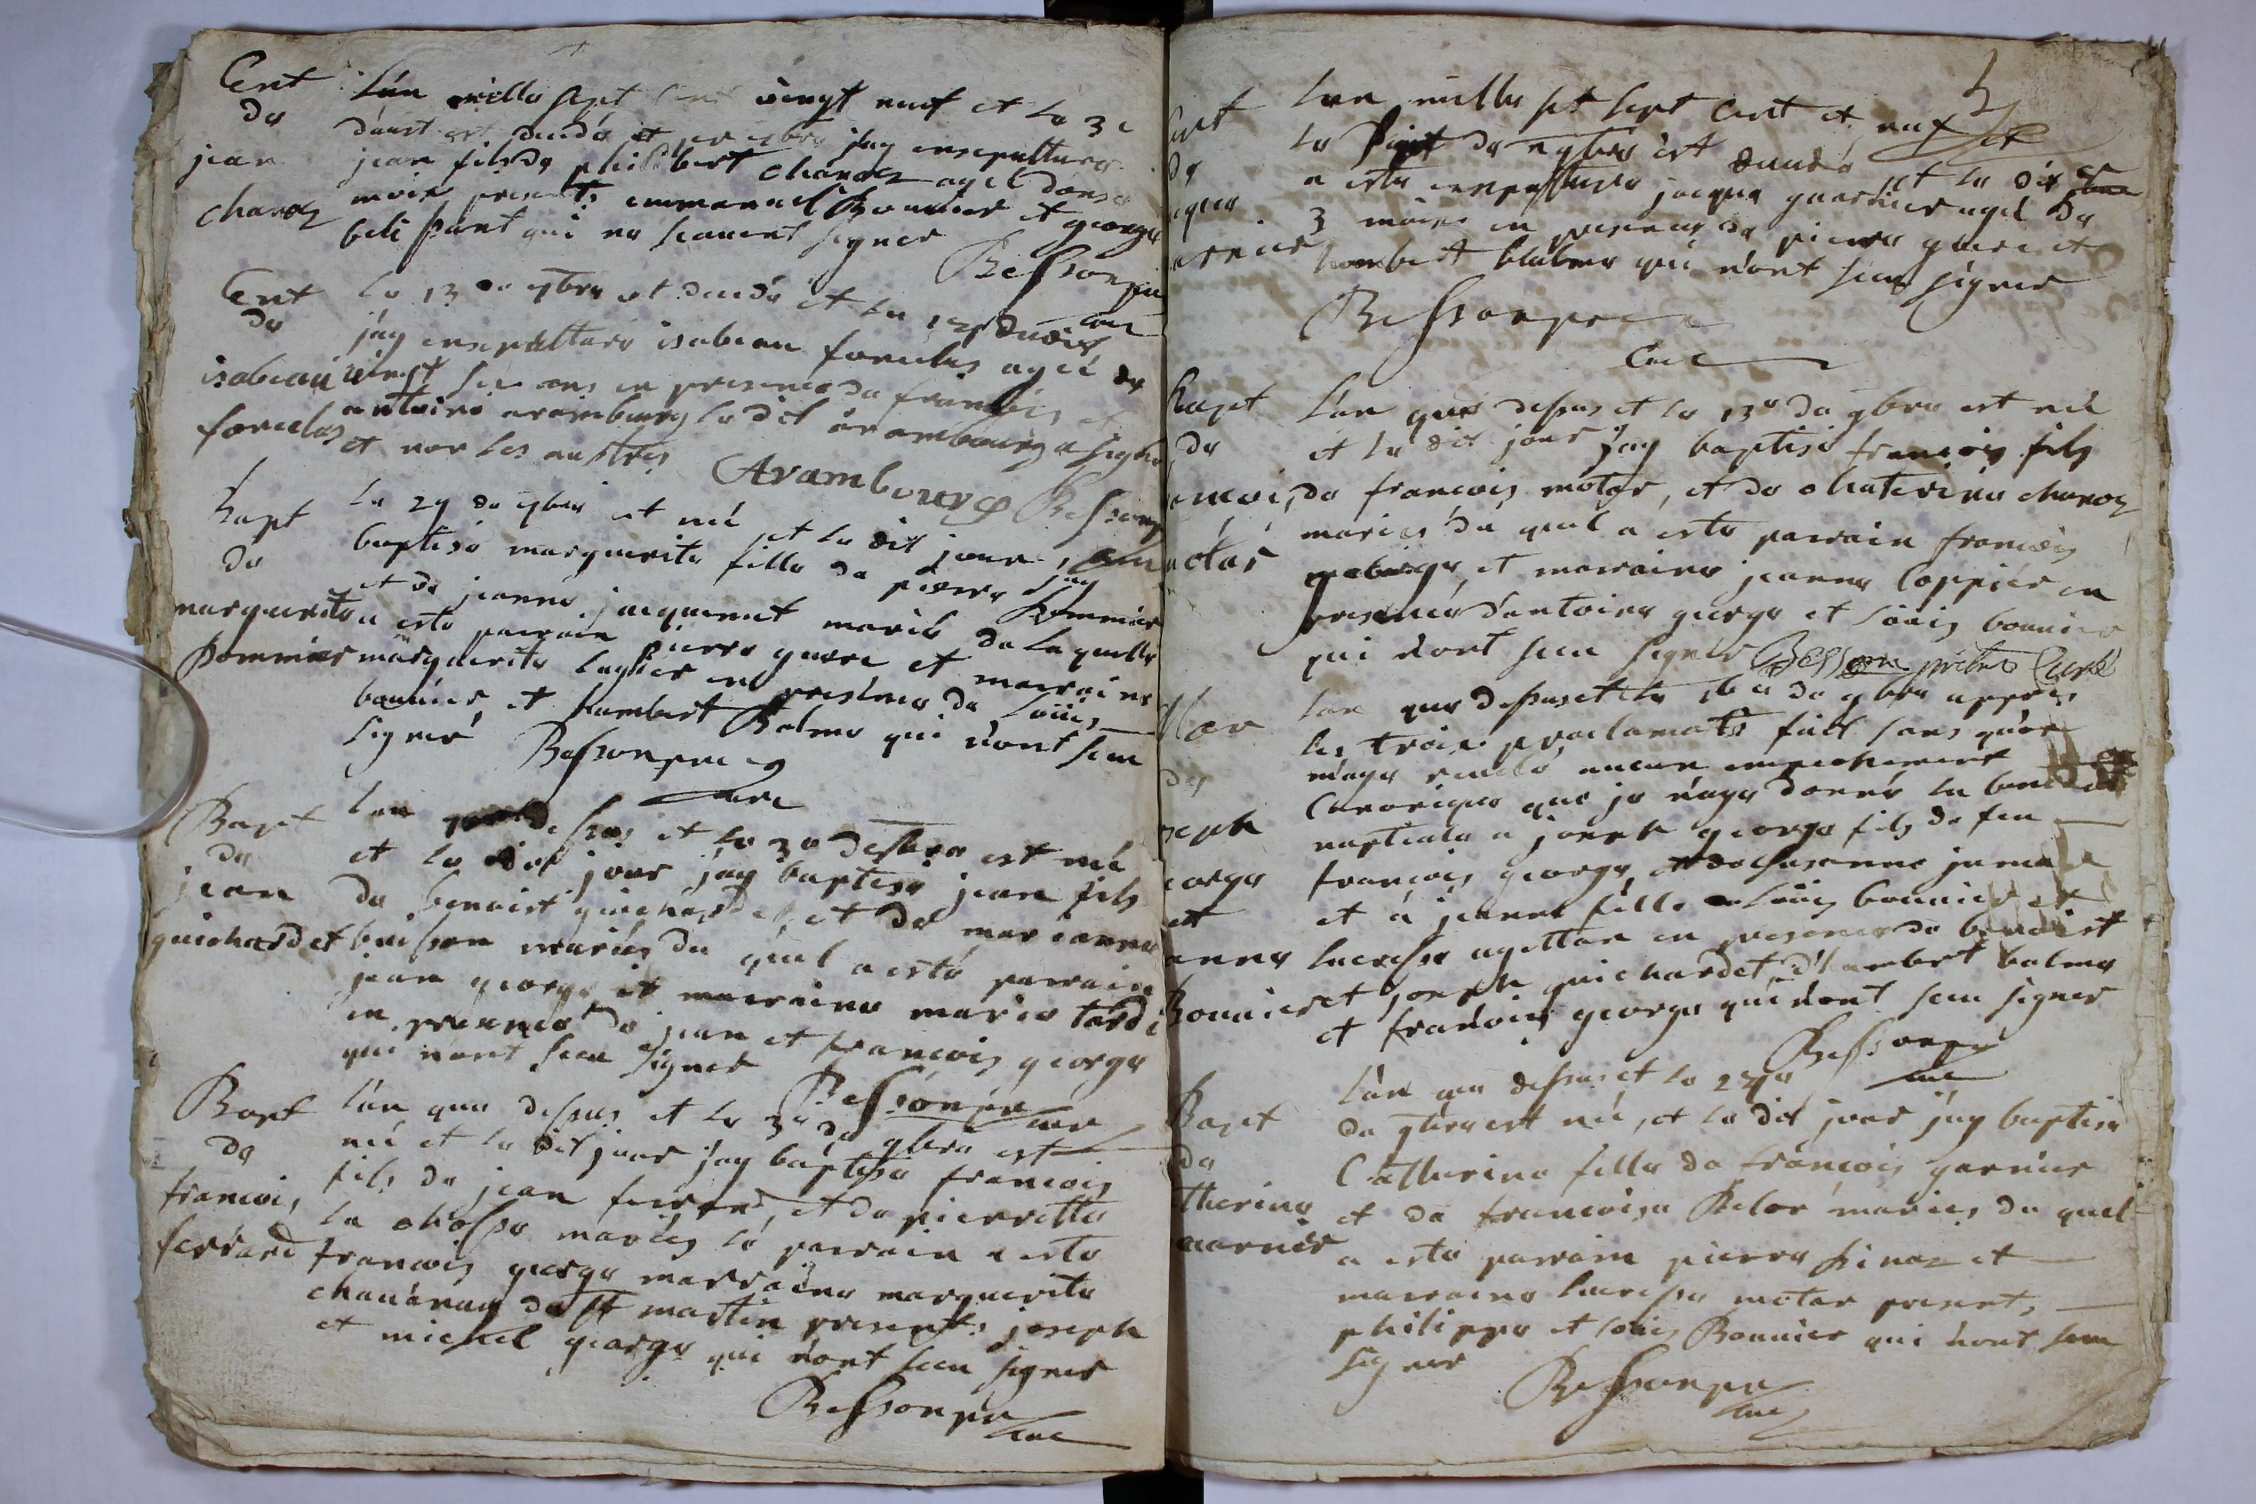 Ent L'an mille sept cent vingt neuf et le 3e
de d'aust est decedé et jay ensepulturé
jean jean fils de philibert charoz agé d'onse
charoz mois presents emmanuel Bonnier et george
qui ne scavent signer
Besson pre
curé
Ent le 13e de 7bre est decedé et le 14e dudit
de jay ensepulturé isabeau forculas agée de
isabeau vingt six ans en presence de françois et
forculas antoine arambourg le dit arambourg a signé
et non les austres Arambourg Besson p
curé
Bapt le 29 de 7bre est née et le dit jour jay
de baptisé marguerite fille de pierre pommier
et de jeanne jacquemet mariés de laquelle
marguerite a esté parrain pierre guere et marraine
pommier marguerite lagier en presence de loüis
bonnier et humbert Balme qui n'ont sceu
signer Besson pre
curé
Bapt L'an que dessus et le 3e est né
de et le dit jour jay baptisé jean fils
jean de benoist guichardet, et de marianne
guichardet buisson mariés du quel a esté parrain
jean george et marraine marie tardi
en presence de jean et françois george
qui n'ont sceu signer
Besson pre
curé
Bapt L'an que dessus et le 3e de 9bre est
de né et le dit jour jay baptisé francois
francois fils de jean ferrand, et de pierrette
ferrand la chosse mariés le parrain a esté
francois george marraine marguerite
de st martin presents joseph
et michel george qui n'ont sceu signer
Besson pre
curé
5
L'an mille sept cent et neuf et
le de 9bre est decedé et le dix
a esté ensepulturé jacque garnier agé de
3 mois en presence de pierre guere et
humbert balme qui n'ont sceu signer
Besson pre
curé
Bapt L'an que dessus et le 13e de 9bre est né
de et le dit jour jay baptisé françois fils
ancois de francois motar, et de chaterine charoz
motar mariés du quel a esté parrain francois
george, et marraine jeanne Coppier en
presence d'antoine george et loüis bonnier
qui n'ont sceu signer Besson prêtre Curé
Mar L'an que dessus et le 16e de 9bre appres
les trois proclamats fait sans qu'on
de m'aye revelé aucun empechement
Canonique que je n'aye donné la bened
seph nuptiale a joseph george fils de feu
eorge francois george et de susanne
et et à jeanne fille de loüis bonnier et
anne lucresse agettan en presence de benoist
Bonnier et joseph guichardet, d'humbert balme
et francois george qui n'ont sceu signer
Besson pre
curé
Bapt L'an que dessus et le 27e
de de 9bre est née, et le dit jour jay baptisé
therine Catherine fille de françois garnier
garnier et de francoise Belor mariés du quel
a esté parrain pierre pinoz et
marraine lucresse motar present
philippe et loüis Bonnier qui n'ont sceu
signer Besson pre
curé